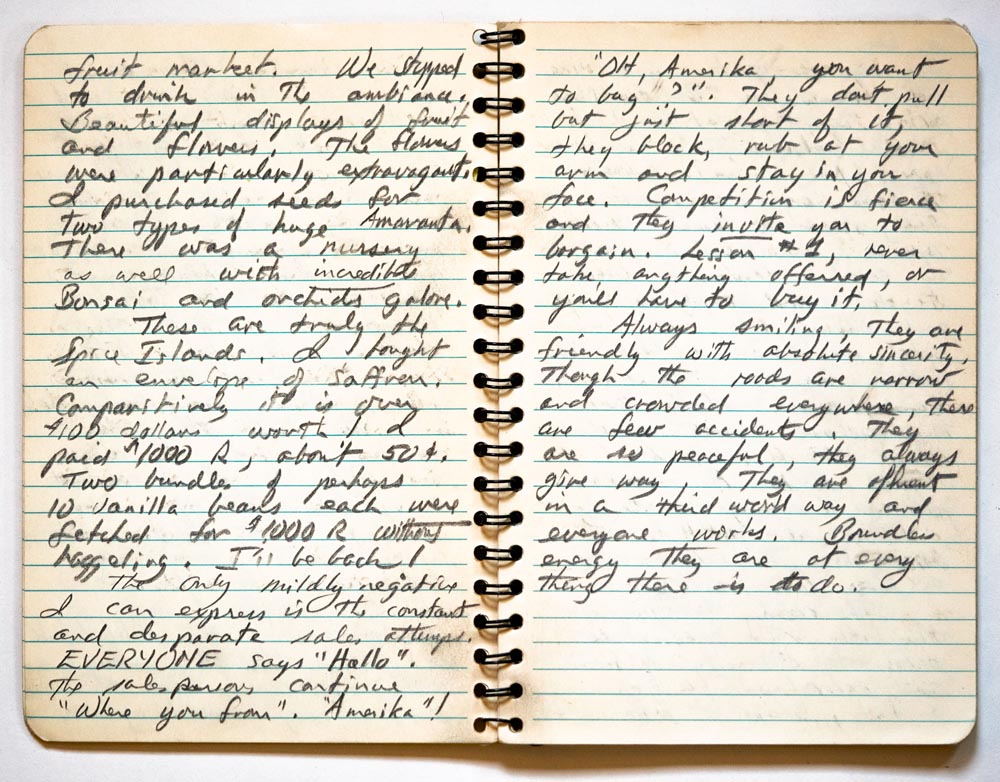 fruit market. We stopped
to drink in The ambiance.
Beautiful displays of fruit
and flowers. The flowers
were particularly extravagant.
I purchased seeds for
two types of huge Amaranta.
There was a nursery
as well with incredible
Bonsai and orchids galore.
These are truly the
Spice Islands. I bought
an envelope of Saffron.
Comparitively it is over
$100 dollars worth! I
paid $1000 R, about 50¢.
Two bundles of perhaps
10 vanilla beans each were
fetched for $1000 R without
haggeling. I'll be back!
The only mildly negative
I can express is the constant
and desparate sales attemps.
EVERYONE says "Hallo".
The salespersons continue
"Where you from". "Amerika"!
"OH, Amerika, you want
to buy "?". They dont pull
but just short of it,
they block, rub at your
arm and stay in you
face. Competition is fierce
and they invite you to
bargain. Lesson #1, never
take anything offerred, or
you'll have to buy it.
Always smiling, They are
friendly with absolute sincerity.
Though the roads are narrow
and crowded everywhere, There
are few accidents. They
are so peaceful, they always
give way. They are
in a third world way and
everyone works. Boundless
energy they are at every
thing there is to do.